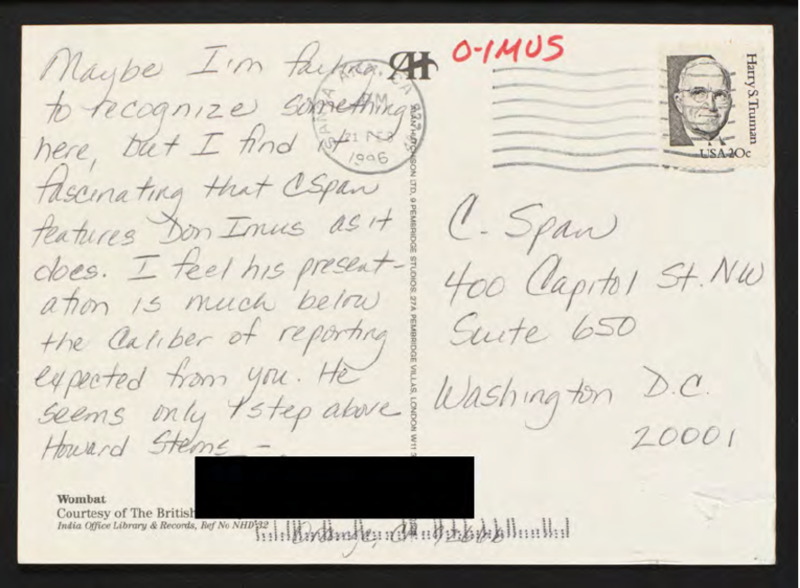 Maybe I'm failing
to recognize something
here, but I find it
fascinating that CSpan
features Don Imus as it
does. I feel his present-
ation is much below
the caliber of reporting
expected from you. He
seems only 1 step above
Howard Sterns -.
Wombat
Courtesy of The British
India Office Library & Records, Ref No NHD 32
Orange, CA
AH
LTD, 9 PEMBRIDGE STUDIOS, 27A PEMBRIDGE VILLAS, LONDON W11 3
O-IMUS
SANTA ANA, CA
PM
21 FEB
1996
Harry S. Truman
USA 20c
C. Span
400 Capitol St. NW
Suite 650
Washington D.C.
20001